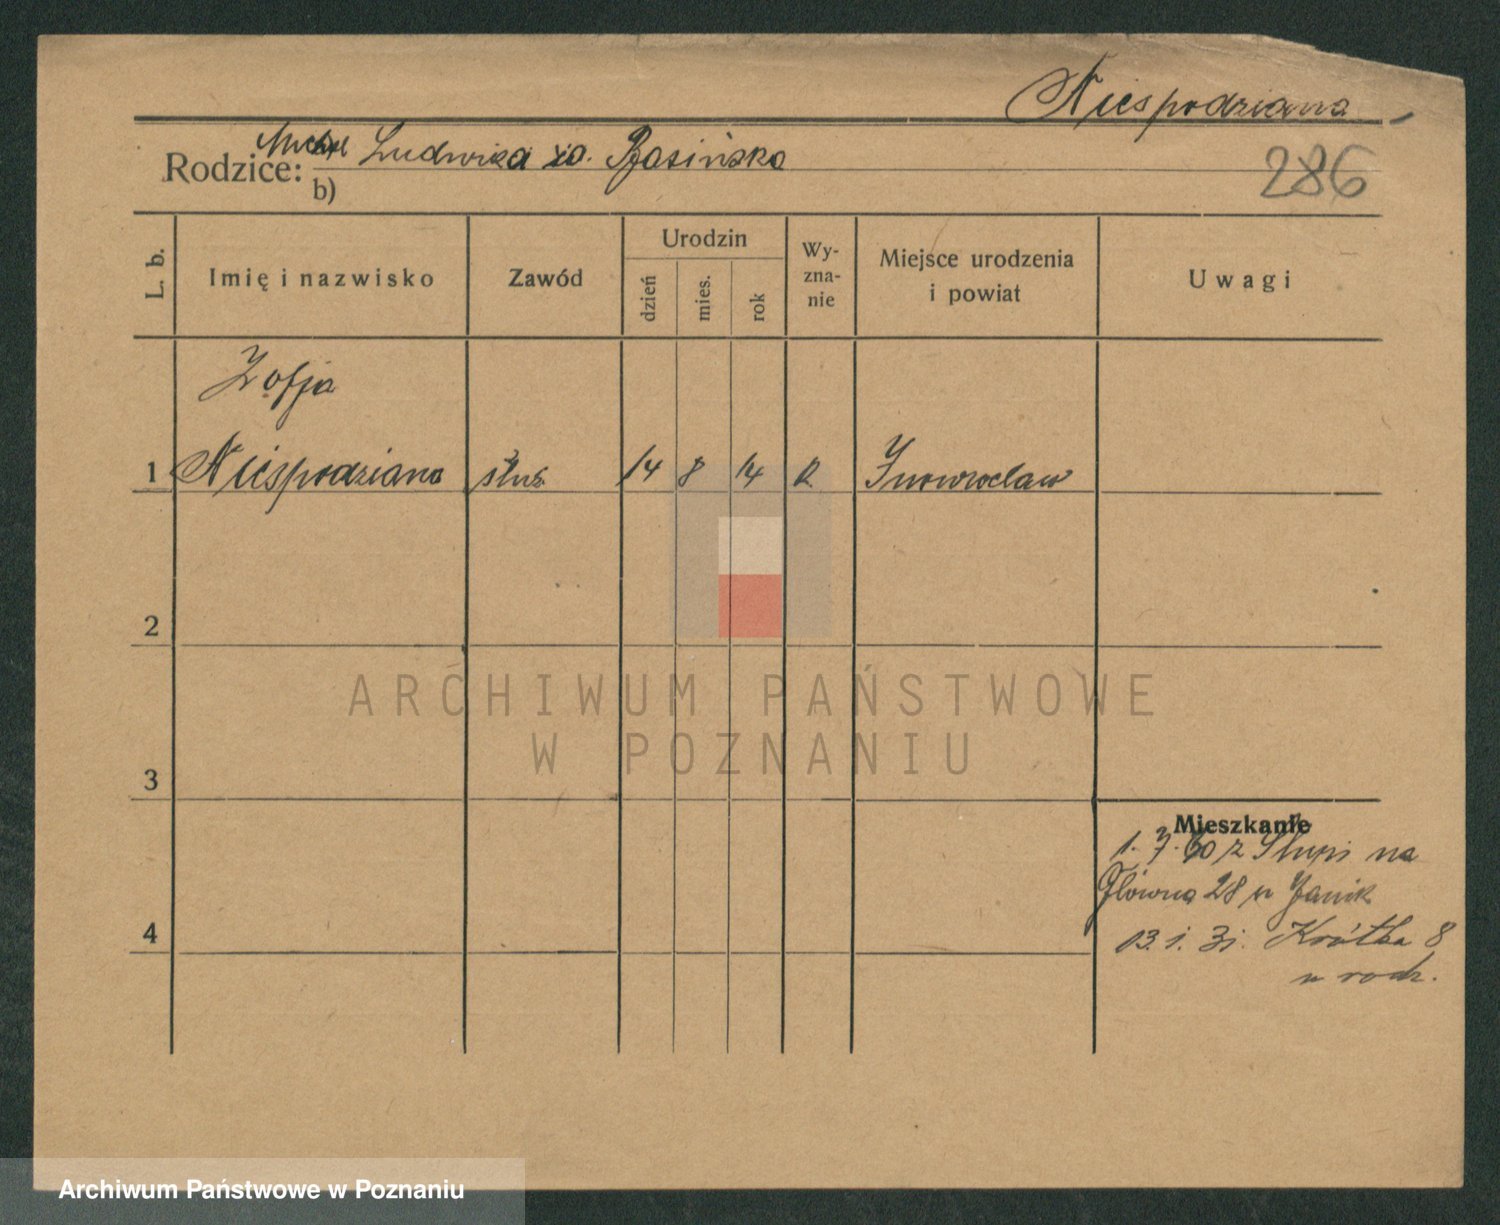 Niespodziana
Rodzice: Michał Ludwika zd. Basińska
b)
286
L. b.
Imię i nazwisko
Zawód
Urodzin
dzień
mies.
rok
Wy-
zna-
nie
Miejsce urodzenia
i powiat
Uwagi
Zofja
1 Niespodziana służ. 14 8 14 R Inowrocław
2
ARCHIWUM PAŃSTWOWE
W POZNANIU
3
Mieszkanie
1. 7. 30 z Słupi na
Główna 28 u Janik
4
13. 1. 31. Krótka 8
u rodz.
Archiwum Państwowe w Poznaniu